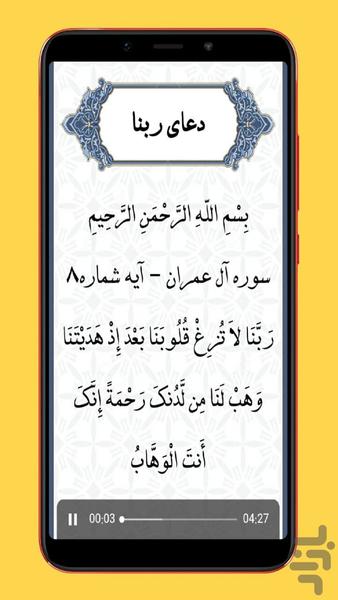 دعای ربنا
بِسْمِ اللّهِ الرَّحْمَنِ الرَّحِيمِ
سوره آل عمران - آیه شماره۸
رَبَّنَا لاَ تُزِغْ قُلُوبَنَا بَعْدَ إِذْ هَدَيْتَنَا
وَهَبْ لَنَا مِن لَّدُنکَ رَحْمَةً إِنَّکَ
أَنتَ الْوَهَّابُ
00:03 04:27
بازار